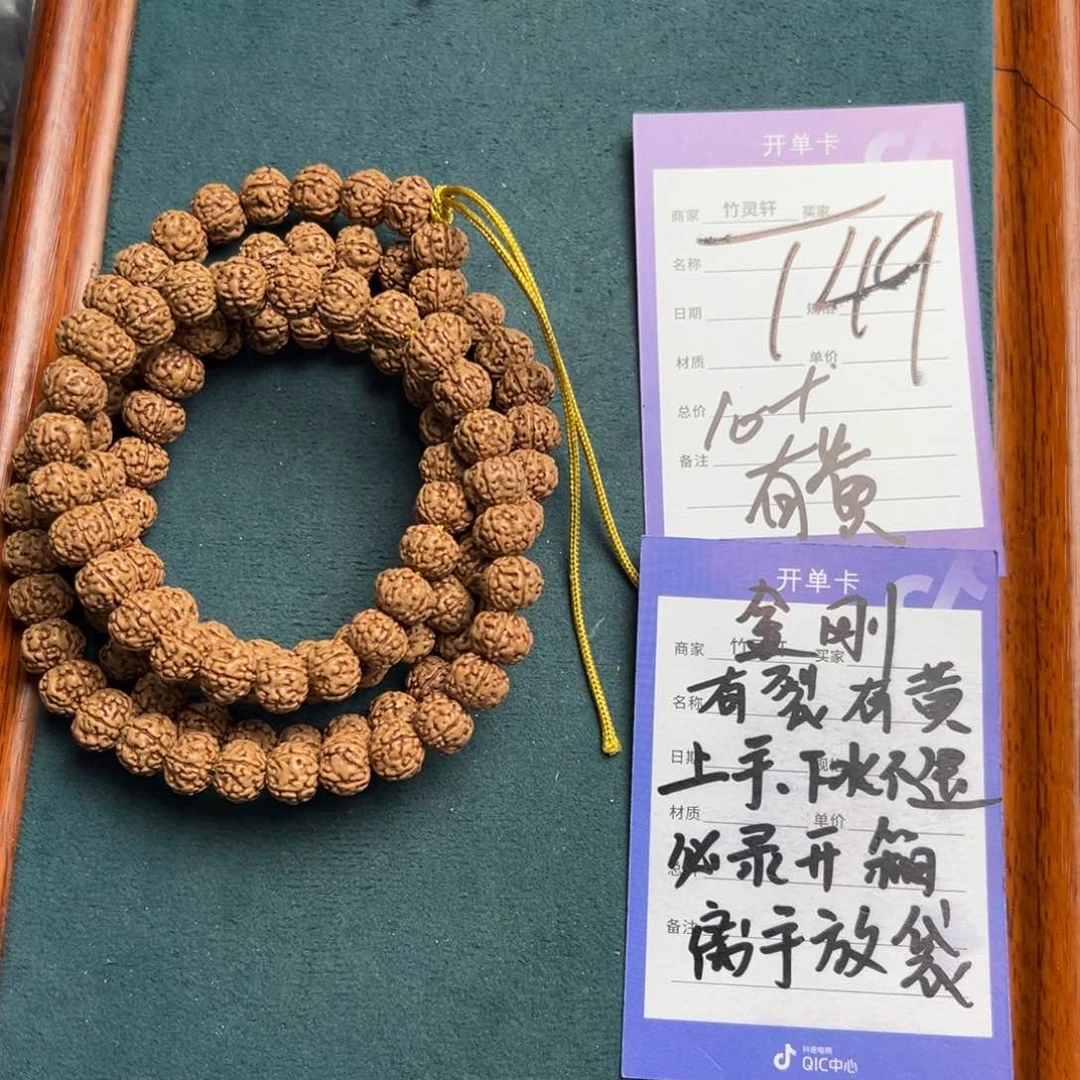 开单卡
商家 竹灵轩 买家
149
名称
日期 规格
材质 单价
总价 10+
备注 有黄
开单卡
金刚
商家 竹 买家
名称 有裂有黄
日期
上手.下水不退
材质 单价
必录开箱
备注 离手放袋
抖音电商
QIC中心